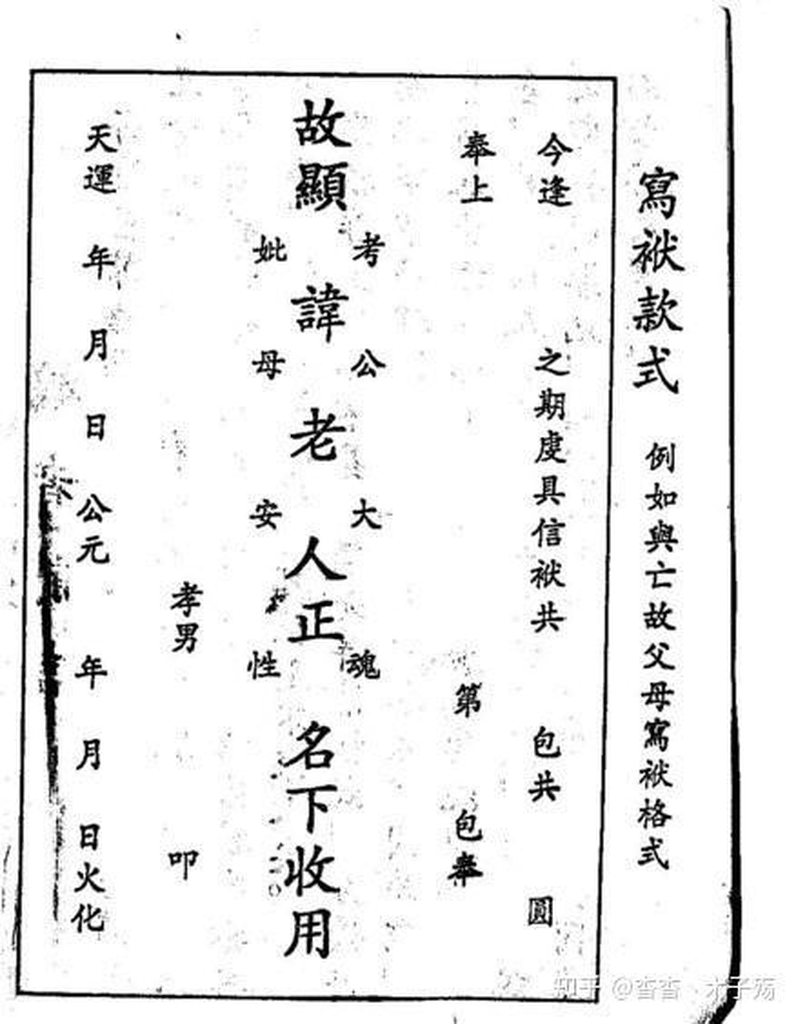 寫袱款式 例如與亡故父母寫袱格式
今逢 之期虔具信袱共 包共 圓
奉上 第 包奉
考 公 大 魂
故顯 諱 老 人正 名下收用
妣 母 安 性
孝男 叩
天運 年 月 日 公元 年 月 日火化
知乎